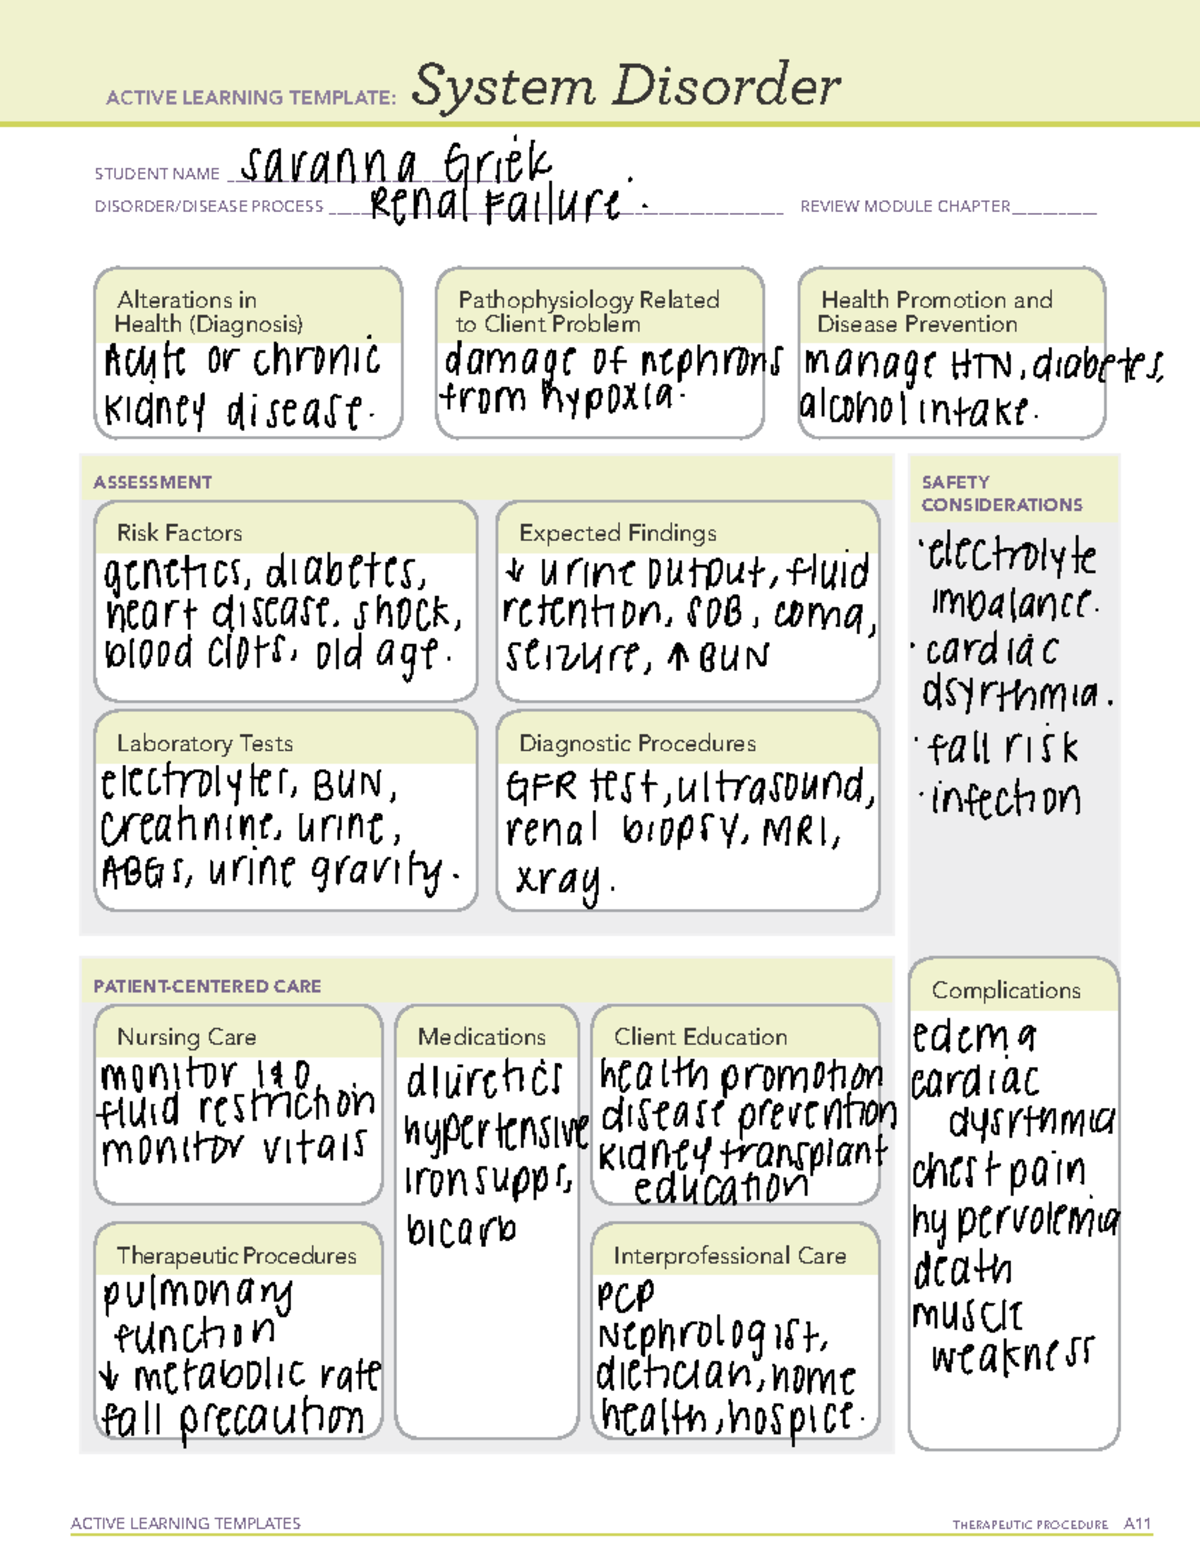 ACTIVE LEARNING TEMPLATE: System Disorder
STUDENT NAME Savanna Griek
DISORDER/DISEASE PROCESS Renal Failure.
REVIEW MODULE CHAPTER
Alterations in
Health (Diagnosis)
Acute or chronic
kidney disease.
Pathophysiology Related
to Client Problem
damage of nephrons
from hypoxia.
Health Promotion and
Disease Prevention
manage HTN, diabetes,
alcohol intake.
ASSESSMENT
Risk Factors
genetics, diabetes,
heart disease, shock,
blood clots, old age.
Expected Findings
↓ urine output, fluid
retention, SOB, coma,
seizure, ↑ BUN
Laboratory Tests
electrolytes, BUN,
creatinine, urine,
ABGs, urine gravity.
Diagnostic Procedures
GFR test, ultrasound,
renal biopsy, MRI,
xray.
SAFETY
CONSIDERATIONS
·electrolyte
imbalance.
·cardiac
dsyrthmia.
·fall risk
·infection
PATIENT-CENTERED CARE
Nursing Care
monitor I&O,
fluid restriction
monitor vitals
Medications
diuretics
hypertensive
iron supps,
bicarb
Client Education
health promotion
disease prevention
kidney transplant
education
Therapeutic Procedures
pulmonary
function
↓ metabolic rate
fall precaution
Interprofessional Care
PCP
Nephrologist,
dietician, home
health, hospice.
Complications
edema
cardiac
dysrthmia
chest pain
hypervolemia
death
muscle
weakness
ACTIVE LEARNING TEMPLATES
THERAPEUTIC PROCEDURE A11